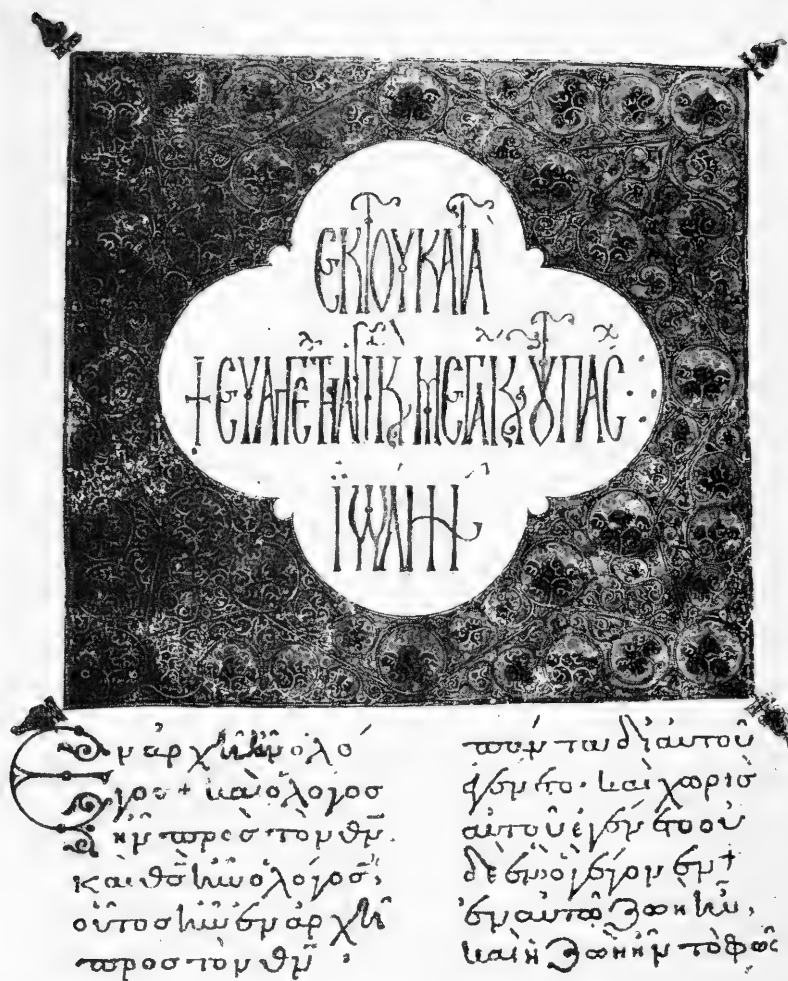 ἐκ τοῦ κατὰ
+ εὐαγγε τῇ ἁγί κ μεγάλ κυ τοῦ πάσχ :·
ἰωάνν
Ἐν ἀρχῆ ἦν ὁ λό
γος + καὶ ὁ λόγος
ἦν προς τὸν θν.
καὶ θς ἦν ὁ λόγος,
οὗτος ἦν ἐν ἀρχῆ
προς τὸν θν.
πάντα δι' αὐτοῦ
ἐγένετο. καὶ χωρὶς
αὐτοῦ ἐγένετο οὐ
δὲ ἓν ὃ γέγονεν +
ἐν αὐτῶ ζωὴ ἦν,
καὶ ἡ ζωὴ ἦν τὸ φῶς